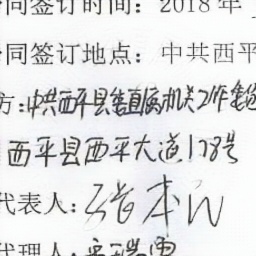 同签订时间：2018年
同签订地点：中共西平
方：中共西平县委直属机关工作委
西平县西平大道178号
代表人：
代理人：